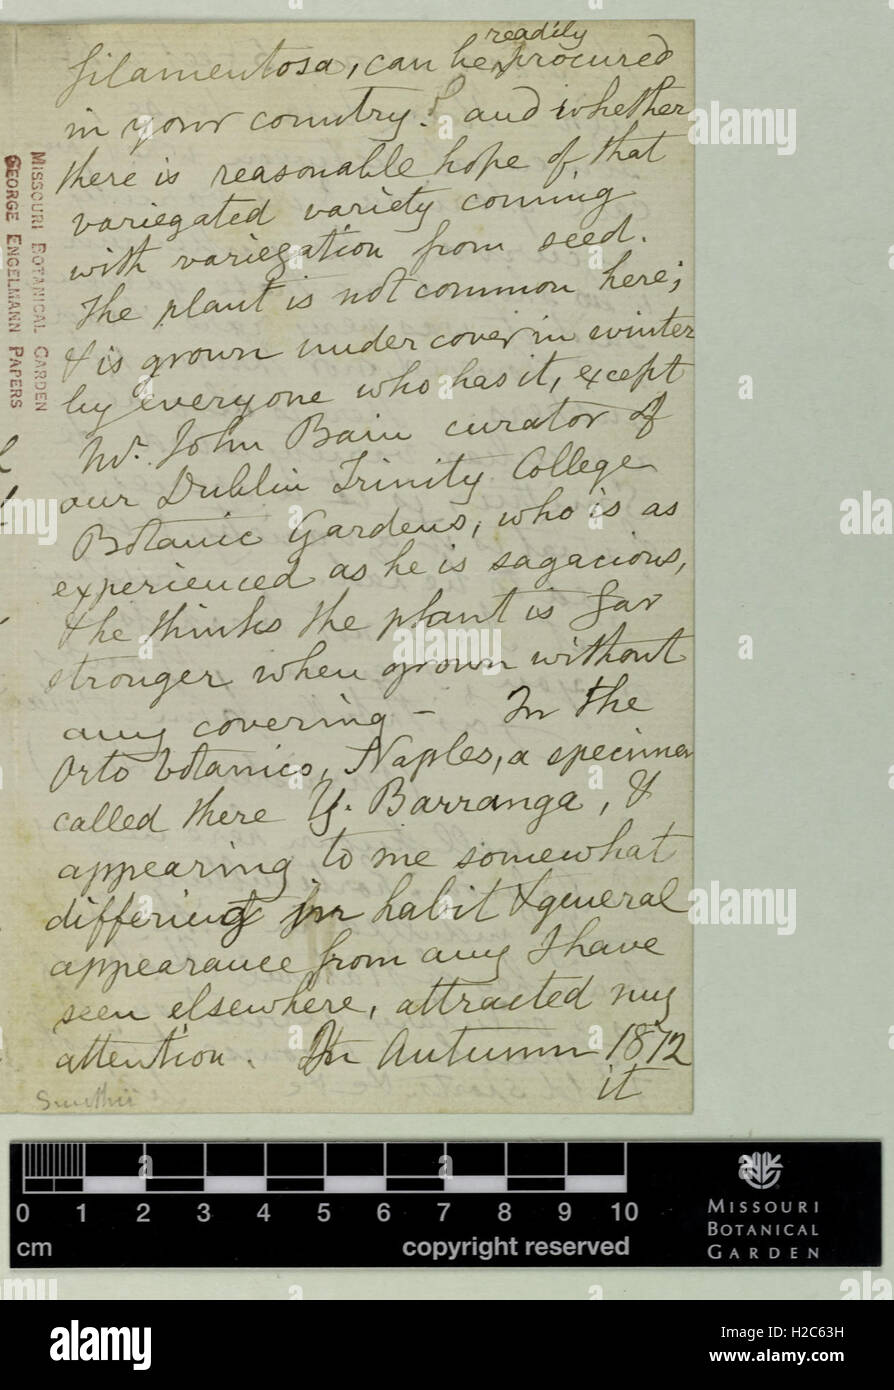 readily
filamentosa, can be procured
in your country? and whether
there is reasonable hope of that
variegated variety coming
with variegation from seed.
The plant is not common here;
& is grown under cover in winter
by everyone who has it, except
Mr. John Bain curator of
our Dublin Trinity College
Botanic Gardens, who is as
experienced as he is sagacious,
& he thinks the plant is far
stronger when grown without
any covering — In the
Orto botanico, Naples, a specimen
called there Y. Barranga, &
appearing to me somewhat
differing in habit & general
appearance from any I have
seen elsewhere, attracted my
attention. In Autumn 1872
it
MISSOURI BOTANICAL GARDEN
GEORGE ENGELMANN PAPERS
0 1 2 3 4 5 6 7 8 9 10
cm
copyright reserved
MISSOURI
BOTANICAL
GARDEN
alamy
Image ID: H2C63H
www.alamy.com